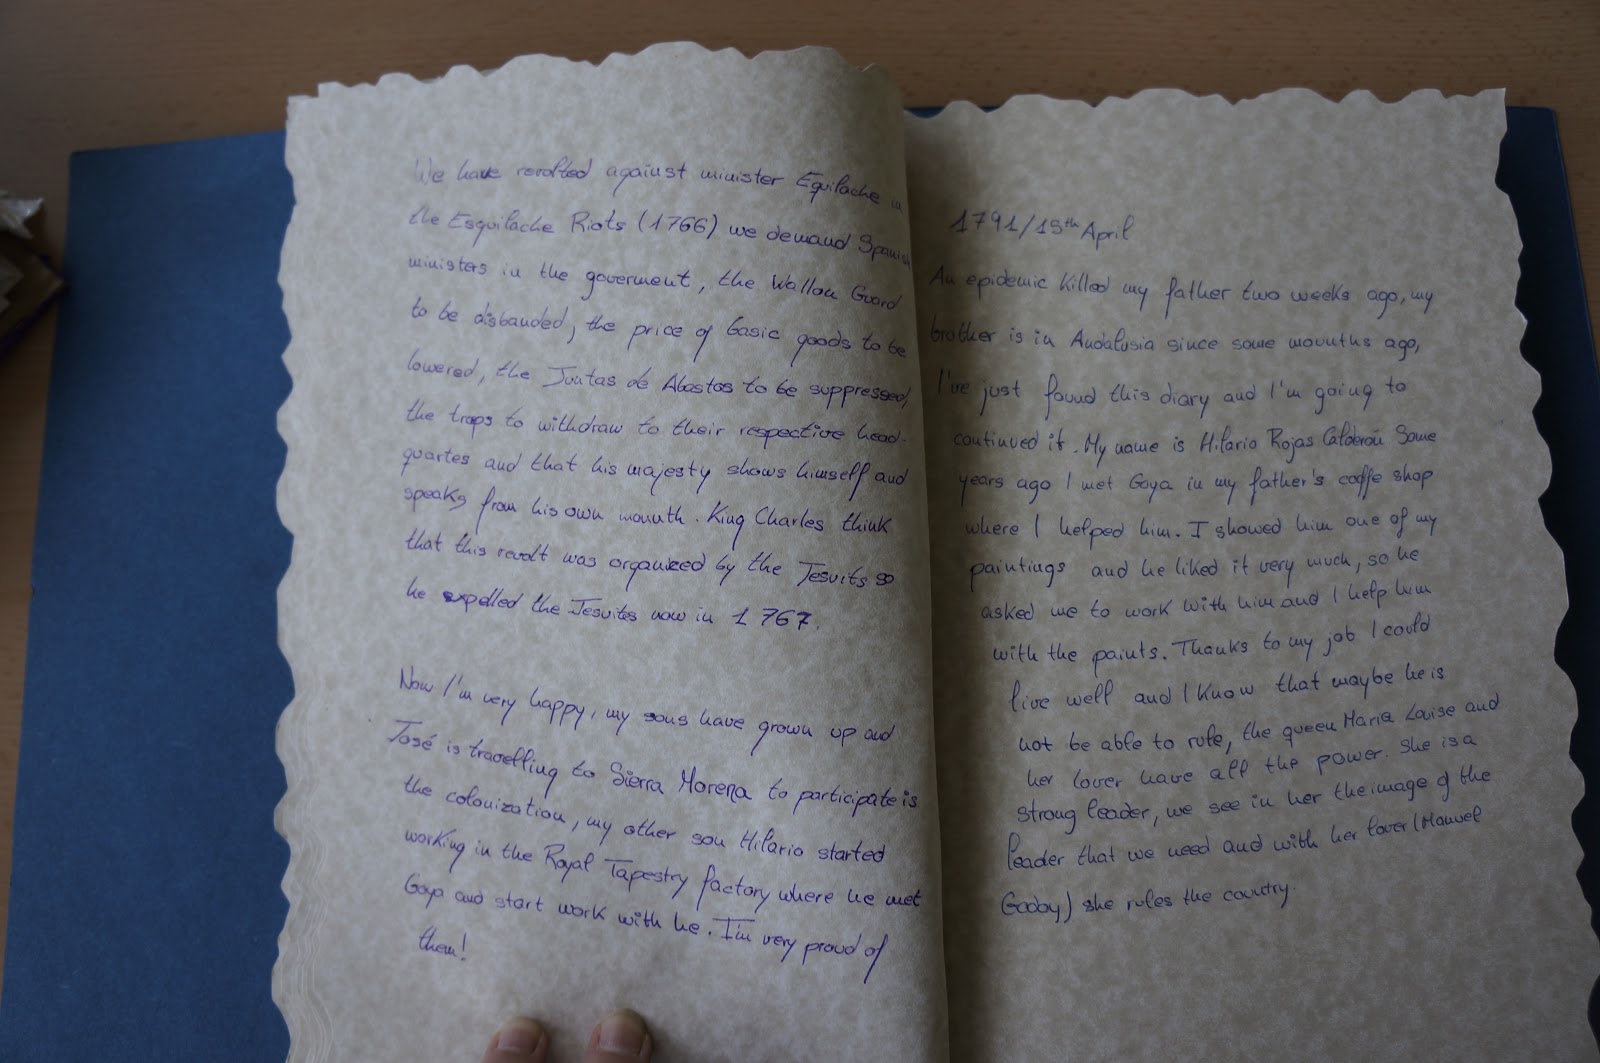 We have revolted against minister Equilache in
the Esquilache Riots (1766) we demand Spanish
ministers in the goverment, the Wallon Guard
to be disbanded, the price of basic goods to be
lowered, the Juntas de Abastos to be suppressed,
the trops to withdraw to their respective head-
quartes and that his majesty shows himself and
speaks from his own mounth. King Charles think
that this revolt was organized by the Jesuits so
he expelled the Jesuites now in 1767.
Now I'm very happy, my sons have grown up and
José is travelling to Sierra Morena to participate is
the colonization, my other son Hilario started
working in the Royal Tapestry factory where he met
Goya and start work with he. I'm very proud of
them!
1791/15th April
An epidemic killed my father two weeks ago, my
brother is in Andalusia since some mounths ago,
I've just found this diary and I'm going to
continued it. My name is Hilario Rojas Calderón Some
years ago I met Goya in my father's coffe shop
where I helped him. I showed him one of my
paintings and he liked it very much, so he
asked me to work with him and I help him
with the paints. Thanks to my job I could
live well and I know that maybe he is
not be able to rule, the queen Maria Louise and
her lover have all the power. She is a
strong leader, we see in her the image of the
leader that we need and with her lover (Manuel
Godoy) she rules the country.